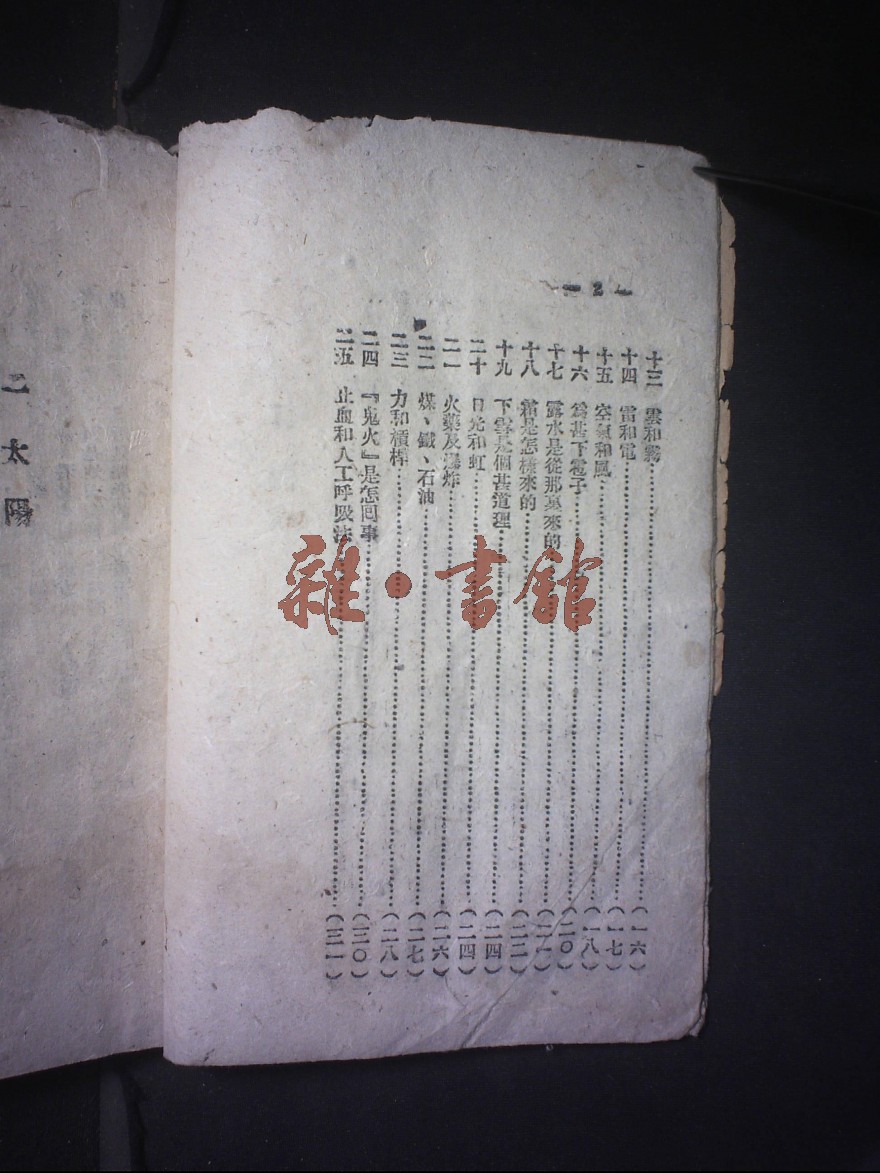 — 2 —
十三 雲和霧……(一六)
十四 雷和電……(一七)
十五 空氣和風……(一八)
十六 爲甚下雹子……(二〇)
十七 露水是從那裏來的……(二一)
十八 霜是怎樣來的……(二二)
十九 下雪是個甚道理……(二四)
二十 日光和虹……(二四)
二一 火藥及爆炸……(二六)
二二 煤、鐵、石油……(二七)
二三 力和槓桿……(二八)
二四 『鬼火』是怎囘事……(三〇)
二五 止血和人工呼吸法……(三一)
二 太陽
雜·書館